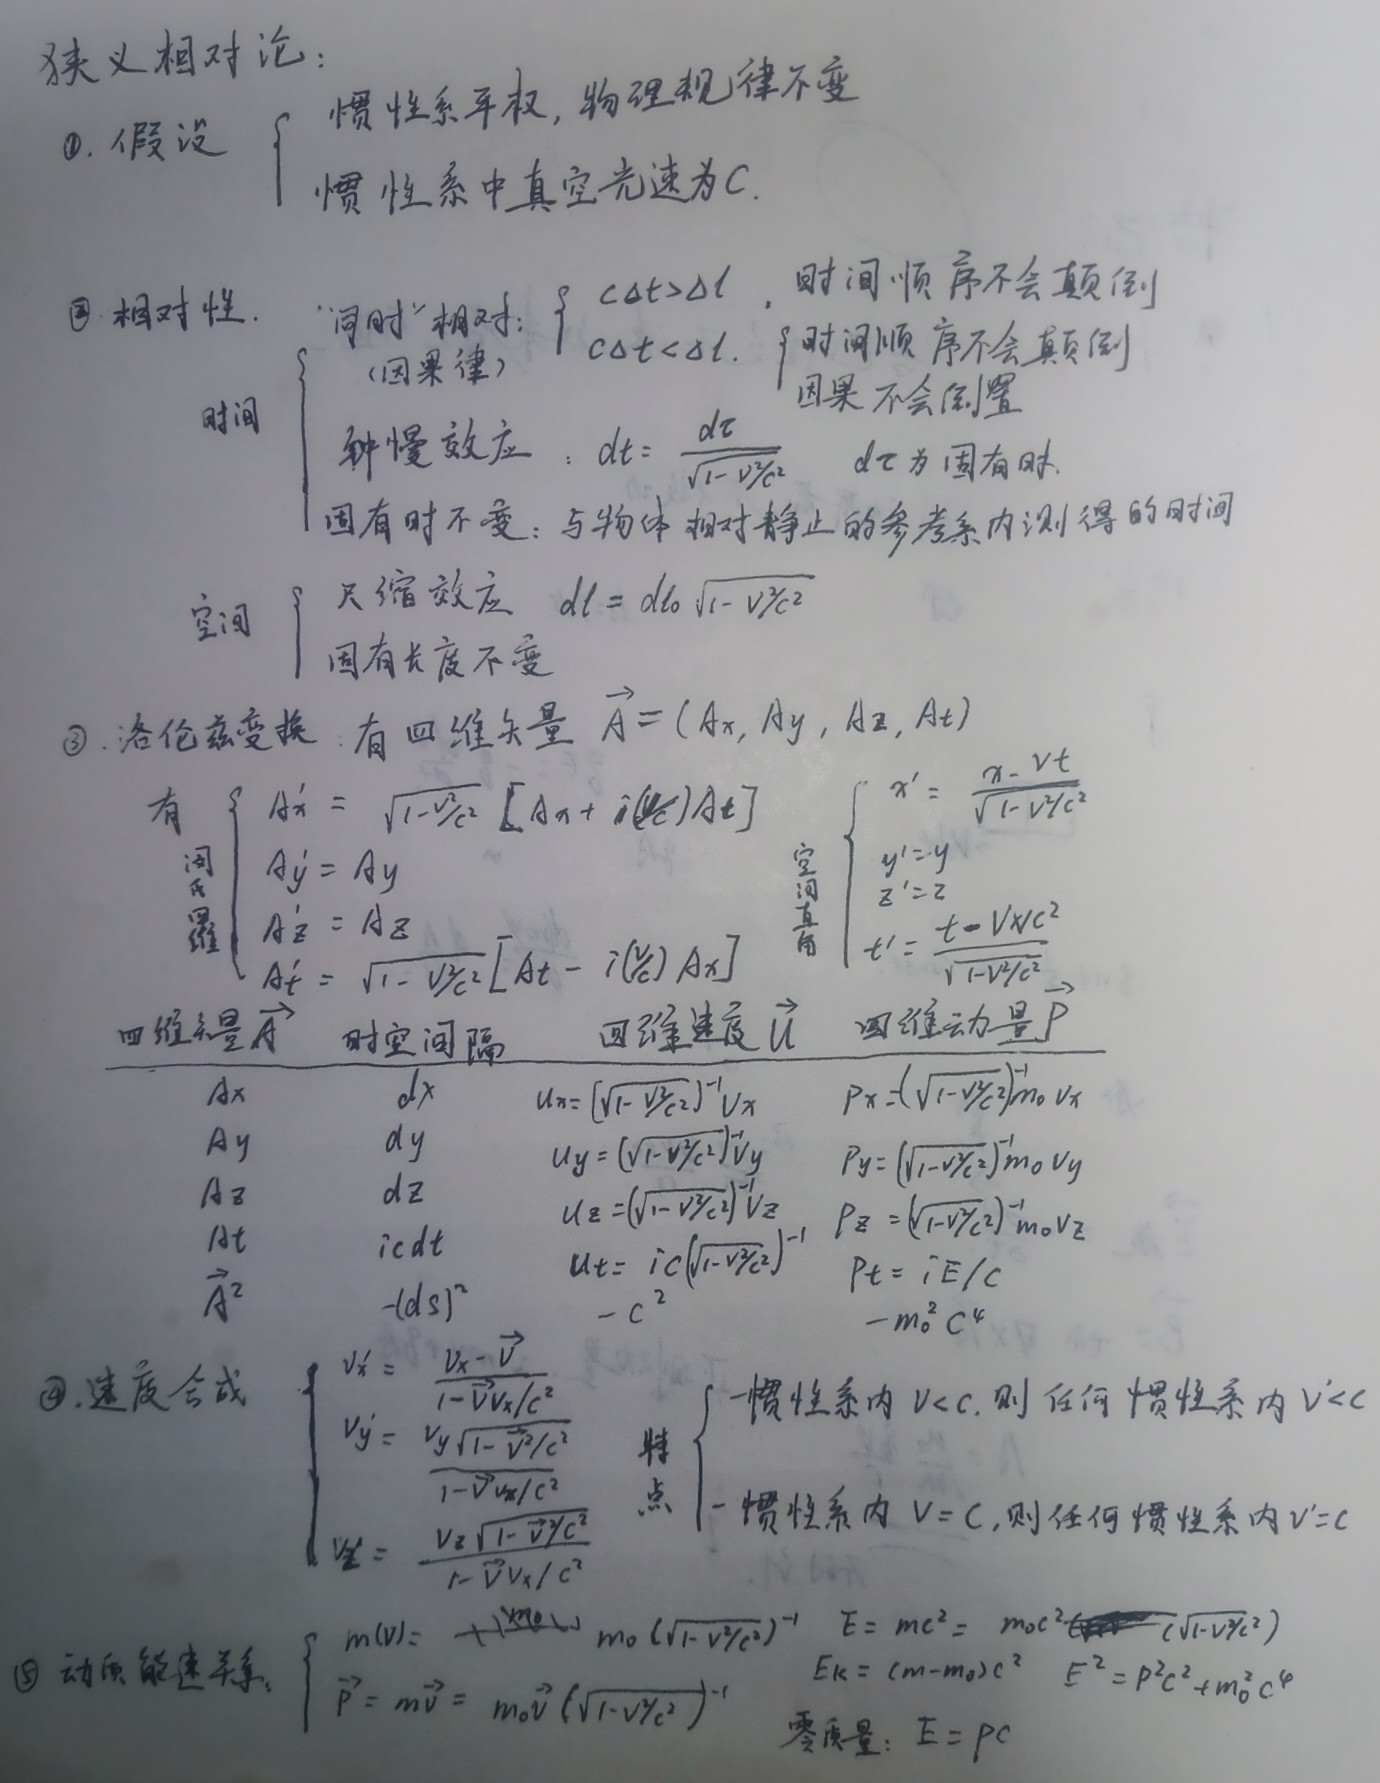 狭义相对论:
①. 假设 { 惯性系平权, 物理规律不变
惯性系中真空光速为C.
②. 相对性. "同时"相对: { cΔt>Δl , 时间顺序不会颠倒
(因果律) cΔt<Δl. { 时间顺序不会颠倒
因果不会倒置
时间
钟慢效应 : dt= dτ/√(1-v²/c²) dτ为固有时.
固有时不变: 与物体相对静止的参考系内测得的时间
空间 { 尺缩效应 dl = dl₀ √(1-v²/c²)
固有长度不变
③. 洛伦兹变换: 有四维矢量 A⃗ = (Ax, Ay, Az, At)
有 { Ax' = √(1-v²/c²) [Ax + i(v/c)At]
闵氏四维
Ay' = Ay
Az' = Az
At' = √(1-v²/c²) [At - i(v/c) Ax]
空间直角 { x' = (x-vt)/√(1-v²/c²)
y'=y
z'=z
t' = (t-vx/c²)/√(1-v²/c²)
四维矢量A⃗ 时空间隔 四维速度U⃗ 四维动量P⃗
Ax dx Ux=(√(1-v²/c²))⁻¹Vx Px=(√(1-v²/c²))⁻¹m₀Vx
Ay dy Uy=(√(1-v²/c²))⁻¹Vy Py=(√(1-v²/c²))⁻¹m₀Vy
Az dz Uz=(√(1-v²/c²))⁻¹Vz Pz=(√(1-v²/c²))⁻¹m₀Vz
At icdt Ut= ic(√(1-v²/c²))⁻¹ Pt= iE/c
A⃗² -(ds)² -c² -m₀²c⁴
④. 速度合成 { Vx' = (Vx-V⃗)/(1-V⃗Vx/c²)
Vy' = Vy√(1-V⃗²/c²)/(1-V⃗Vx/c²)
Vz' = Vz√(1-V⃗²/c²)/(1-V⃗Vx/c²)
特点 { 一惯性系内 V<C. 则任何惯性系内 V'<C
一惯性系内 V=C, 则任何惯性系内 V'=C
⑤ 动质能速关系: { m(v)= m₀(√(1-v²/c²))⁻¹ E = mc² = m₀c² (√(1-v²/c²))
P⃗ = mv⃗ = m₀v⃗(√(1-v²/c²))⁻¹ Ek = (m-m₀)c² E²=P²c²+m₀²c⁴
零质量: E = pc